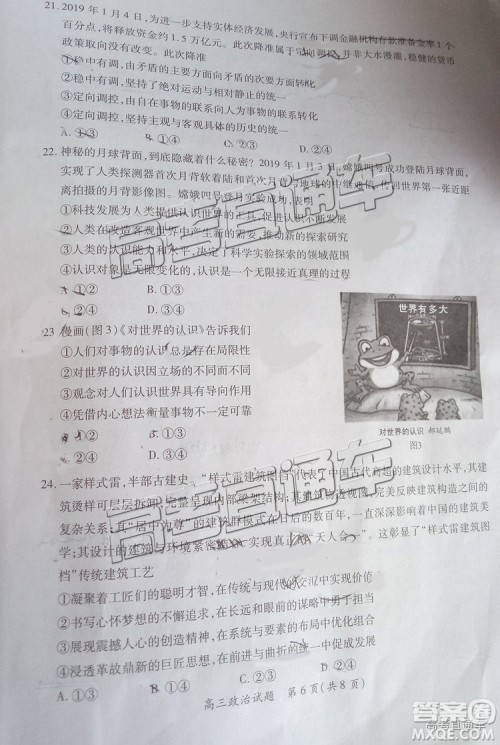 21. 2019 年 1 月 4 日，为进一步支持实体经济发展，央行宣布下调金融机构存款准备金率 1 个
百分点，将释放资金约 1.5 万亿元。此次降准属于定向调控，并非大水漫灌，稳健的货币
此次降准
①稳中有调，由矛盾的主要方面向矛盾的次要方面转化
②稳中有调，坚持了绝对运动与相对静止的统一
③定向调控，由自在事物的联系向人为事物的联系转化
④定向调控，坚持了主观与客观具体的历史的统一
A. ①③ B. ①④ C. ②③ D. ②④
22. 神秘的月球背面，到底隐藏着什么秘密？2019 年 1 月 3 日，嫦娥四号成功登陆月球背面，
实现了人类探测器首次月背软着陆和首次月背与地球的中继通信，并传回世界第一张近距
离拍摄的月背影像图。嫦娥四号登月实验成功，表明
①科技发展为人类提供认识世界的
②人类在改造客观世界中产生新的需要，推动新的探索研究
③人类的认识能力和水平，决定了科学实验探索研究的广度
④认识对象是无限变化的，认识是一个无限接近真理的过程
A. ①② B. ①③ C. ②④ D. ③④
23 漫画(图 3)《对世界的认识》告诉我们
①人们对事物的认识总是存在局限性
②对世界的认识因立场的不同而不同
③观念对人们认识世界具有导向作用
④凭借内心想法衡量事物可大可小
A. ①② B. ①④ C. ②③ D. ③④
世界有多大
对世界的认识 郝延鹏
图3
24. 一家样式雷，半部古建史。“样式雷建筑图档”代表了中国古代高超的建筑设计水平，其建
筑烫样可层层拆卸，完整呈现了内部结构，完美反映建筑美的
复杂关系；其“居中为尊”的建筑群模式在后的数百年，一直深深影响着中国建筑美
学；其设计的建筑与环境紧密“天人合一”。这彰显了“样式雷建筑图
档”传统建筑工艺
①凝聚着工匠们的聪明才智，在传统与现代的交汇中前行
②书写心怀梦想的不懈追求，在长远和眼前的谋略中勇毅
③展现震撼人心的非凡创造，在整体与部分的布局中优化组合
④浸透革故鼎新的巨匠思想，在前进与曲折的统一中实现发展
A. ①③ B. ①④ C. ②③ D. ②④
高三政治试题 第 6 页(共 8 页)
高考直通车
高考直通车
高考直通车
答案圈